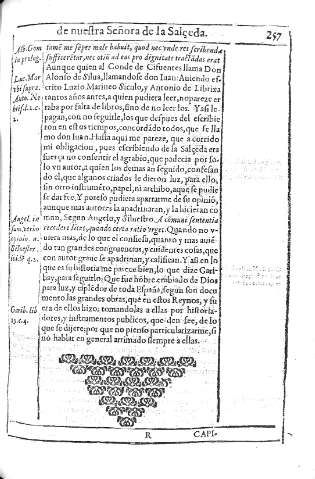 de nuestra Señora de la Salceda. 257
tamẽ me sẽper male habuit, quod nec unde res scribendæ
suffecerẽtur, nec otiũ ad eas pro dignitate tractãdas erat
Aunque quien al Conde de Cifuentes llama Don
Alonso de Silua, llamandose don Iuan: Auiendo es
crito Luzio Marineo Siculo, y Antonio de Libriza
tantos años antes, a quien pudiera leer, no parece er
raba por falta de libros, sino de no leerlos. Y assi le
pagan, con no seguirle, los que despues del escribie
ron en estos tiempos, concordãdo todos, que se lla
mo don Iuan. Hasta aqui me parece, que a corrido
mi obligacion, pues escribiendo de la Salçeda era
fuerça no consentir el agrabio, que padecia por so
lo vn autor, a quien los demas an seguido, confesan
do el, que algunos criados le dieron luz, para ello,
sin otro instrumẽto, papel, ni archibo, aque se pudie
se dar fee. Y por esso pudiera apartarme de su opiniõ,
aunque mas autores la apadrinaran, y la hicieran co
mun, Segun Angelo, y Siluestro. A cõmuni sententia
recedere licet, quando certa ratio vrget. Quando no v-
uiera mas, de lo que el confiesa, quanto y mas auiẽ
do tan grandes congruencias, y euidentes cosas, que
con autor graue se apadrinan, y califican. Y assi en lo
que es su historia me parece bien, lo que dize Gari-
bay, para seguirlo: Que fue hõbre embiado de Dios
para luz, y esplẽdor de toda España, segun son docu
mento las grandes obras, que en estos Reynos, y fu
era de ellos hizo, tomandolas a ellas por historia-
dores, y instrumentos publicos, que den fee, de lo
que se dijere: por que no pienso particularizarme, si
no hablar en general arrimado siempre a ellas.
Alb. Gom
in prolog.
Luc. Mar-
bi supra.
Anto. Ne
Angel. in
Garib. lib
R CAPI-